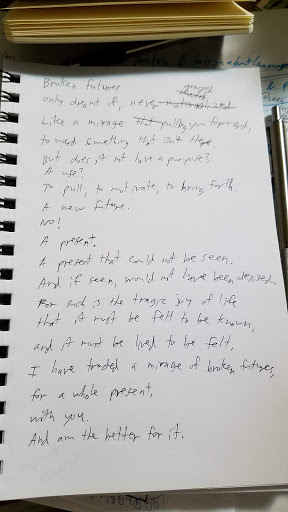 poetry &
Broken futures
only dreamt of, never materialized
grasped
Like a mirage that pulls you forward,
toward something that isn't there.
But does it not have a purpose?
A use?
To pull, to motivate, to bring forth.
A new future.
No!
A present.
A present that could not be seen.
And if seen, would not have been desired.
For such is the tragic joy of life
that it must be felt to be known,
and it must be lived to be felt,
I have traded a mirage of broken futures,
for a whole present,
with you.
And am the better for it.